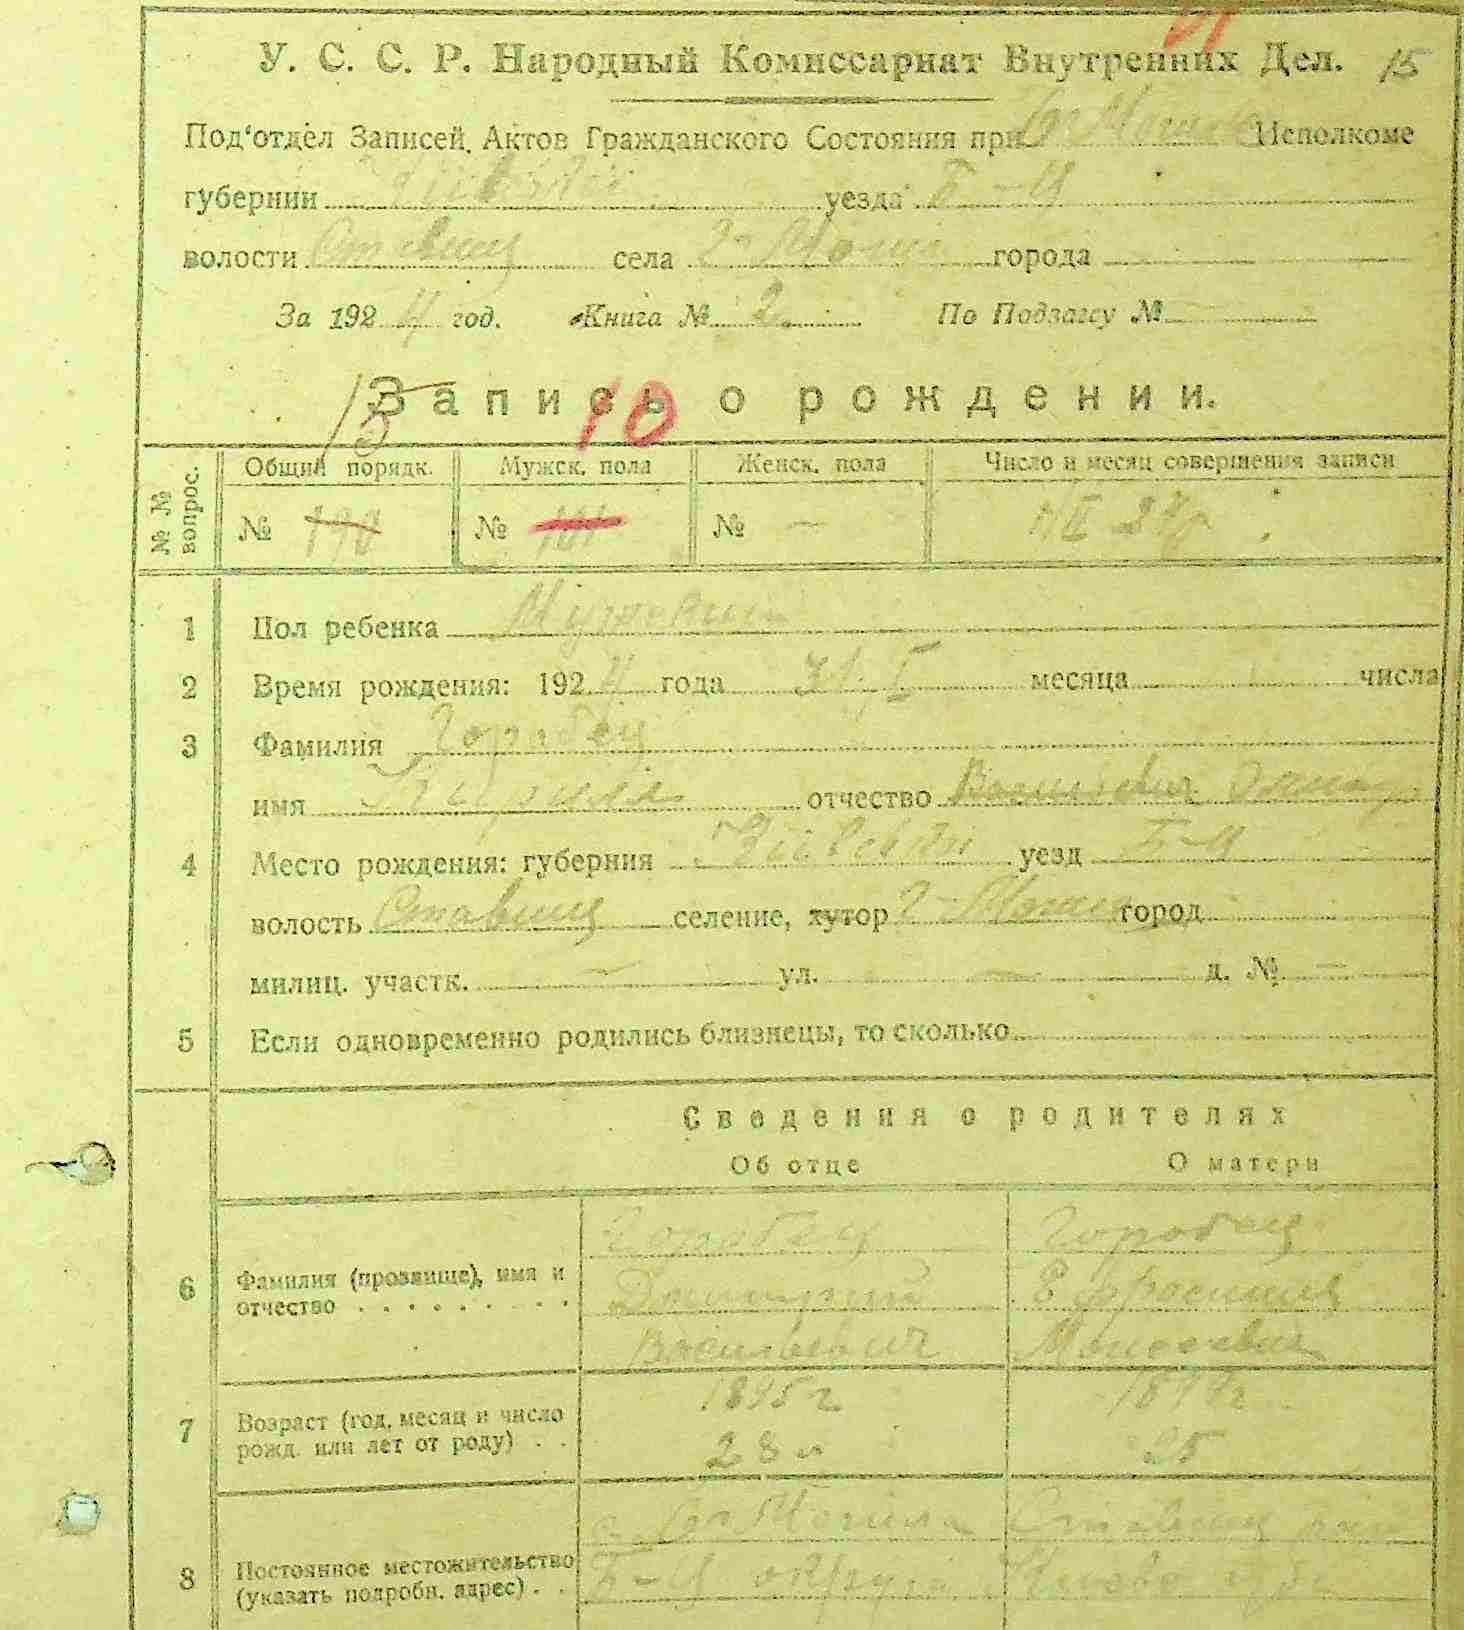 У. С. С. Р. Народный Комиссариат Внутренних Дел. 15
Под‘отдел Записей Актов Гражданского Состояния при Исполкоме
губернии уезда Б-Ц
волости Ставищ села города
За 1924 год. Книга № 2 По Подзагсу № —
Запись о рождении.
15 10
№ № вопрос. Общий порядк. Мужск. пола Женск. пола Число и месяц совершения записи
№ 190 № 101 № —
1 Пол ребенка Мужеский
2 Время рождения: 1924 года 31/I месяца числа
3 Фамилия Горобец
имя Кирилл отчество
4 Место рождения: губерния Киевская уезд Б-Ц
волость Ставищ селение, хутор город
милиц. участк. — ул. — д. № —
5 Если одновременно родились близнецы, то сколько
Сведения о родителях
Об отце О матери
6 Фамилия (прозвище), имя и отчество
Горобец Горобец
Дмитрий Ефросиния
Васильевич
7 Возраст (год, месяц и число рожд. или лет от роду)
1895 г
28 л 25
8 Постоянное местожительство (указать подробн. адрес)
Могила Ставищ
Б-Ц округи